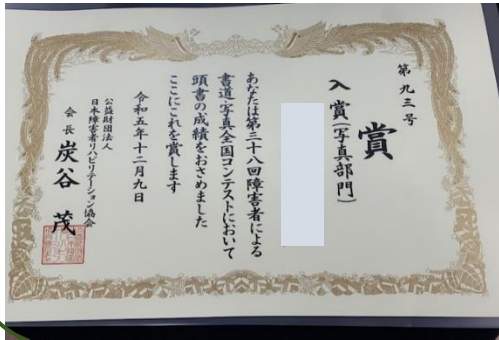 第九三号
賞
入賞(写真部門)
あなたは第三十八回障害者による
書道・写真全国コンテストにおいて
頭書の成績をおさめました
ここにこれを賞します
令和五年十二月九日
公益財団法人
日本障害者リハビリテーション協会
会長 炭谷 茂